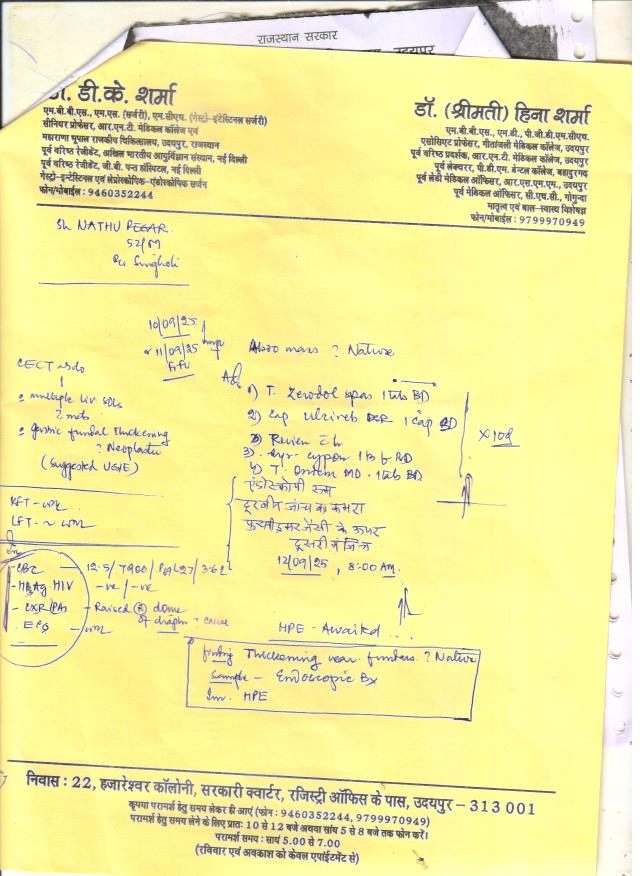 राजस्थान सरकार
डॉ. डी.के. शर्मा
एम.बी.बी.एस., एम.एस. (सर्जरी), एम.सीएच. (गेस्ट्रो-इंटेस्टिनल सर्जरी)
सीनियर प्रोफेसर, आर.एन.टी. मेडिकल कॉलेज एवं
महाराणा भूपाल राजकीय चिकित्सालय, उदयपुर, राजस्थान
पूर्व वरिष्ठ रेजीडेंट, अखिल भारतीय आयुर्विज्ञान संस्थान, नई दिल्ली
पूर्व वरिष्ठ रेजीडेंट, जी.बी. पन्त हॉस्पिटल, नई दिल्ली
गेस्ट्रो-इन्टेस्टिनल एवं लेप्रोस्कोपिक-एंडोस्कोपिक सर्जन
फोन/मोबाईल : 9460352244
डॉ. (श्रीमती) हिना शर्मा
एम.बी.बी.एस., एम.डी., पी.जी.डी.एम.सीएच.
एसोसिएट प्रोफेसर, गीतांजली मेडिकल कॉलेज, उदयपुर
पूर्व वरिष्ठ प्रदर्शक, आर.एन.टी. मेडिकल कॉलेज, उदयपुर
पूर्व लेक्चरर, पी.डी.एम. डेन्टल कॉलेज, बहादुरगढ़
पूर्व लेडी मेडिकल ऑफिसर, आर.एस.एम.एम., उदयपुर
पूर्व मेडिकल ऑफिसर, सी.एच.सी., गोगुन्दा
मातृत्व एवं बाल-स्वास्थ्य विशेषज्ञ
फोन/मोबाईल : 9799970949
Sh NATHU PEGAR
52/M
R/o Singholi
10/09/25
11/09/25
Abdo mass ? Nature
CECT
multiple liv SOLs
? mets
gastric fundal thickening
? Neoplastic
(suggested UGIE)
Adv
1) T. Zerodol spas 1 tab BD
2) Cap Ulzireb DSR 1 cap BD
3) Syr- cypon
4) T. MD. 1 tab BD
x10d
एंडोस्कोपी रूम
दूरबीन जांच का कमरा
के ऊपर
दूसरी मंजिल
12/09/25, 8:00 Am.
RFT - wnl
LFT - ~ wnl
CBC - 12.5/7900/
HBsAg HIV -ve/-ve
CXR (PA) - Raised (R) dome
of diaphr ? cause
ECG - wnl
HPE - Awaited ...
Finding Thickening near fundus ? Nature
Sample - Endoscopic Bx
Inv. HPE
निवास : 22, हजारेश्वर कॉलोनी, सरकारी क्वार्टर, रजिस्ट्री ऑफिस के पास, उदयपुर - 313 001
कृपया परामर्श हेतु समय लेकर ही आएं (फोन : 9460352244, 9799970949)
परामर्श हेतु समय लेने के लिए प्रातः 10 से 12 बजे अथवा सायं 5 से 8 बजे तक फोन करें।
परामर्श समय : सायं 5.00 से 7.00
(रविवार एवं अवकाश को केवल एपांईटमेंट से)